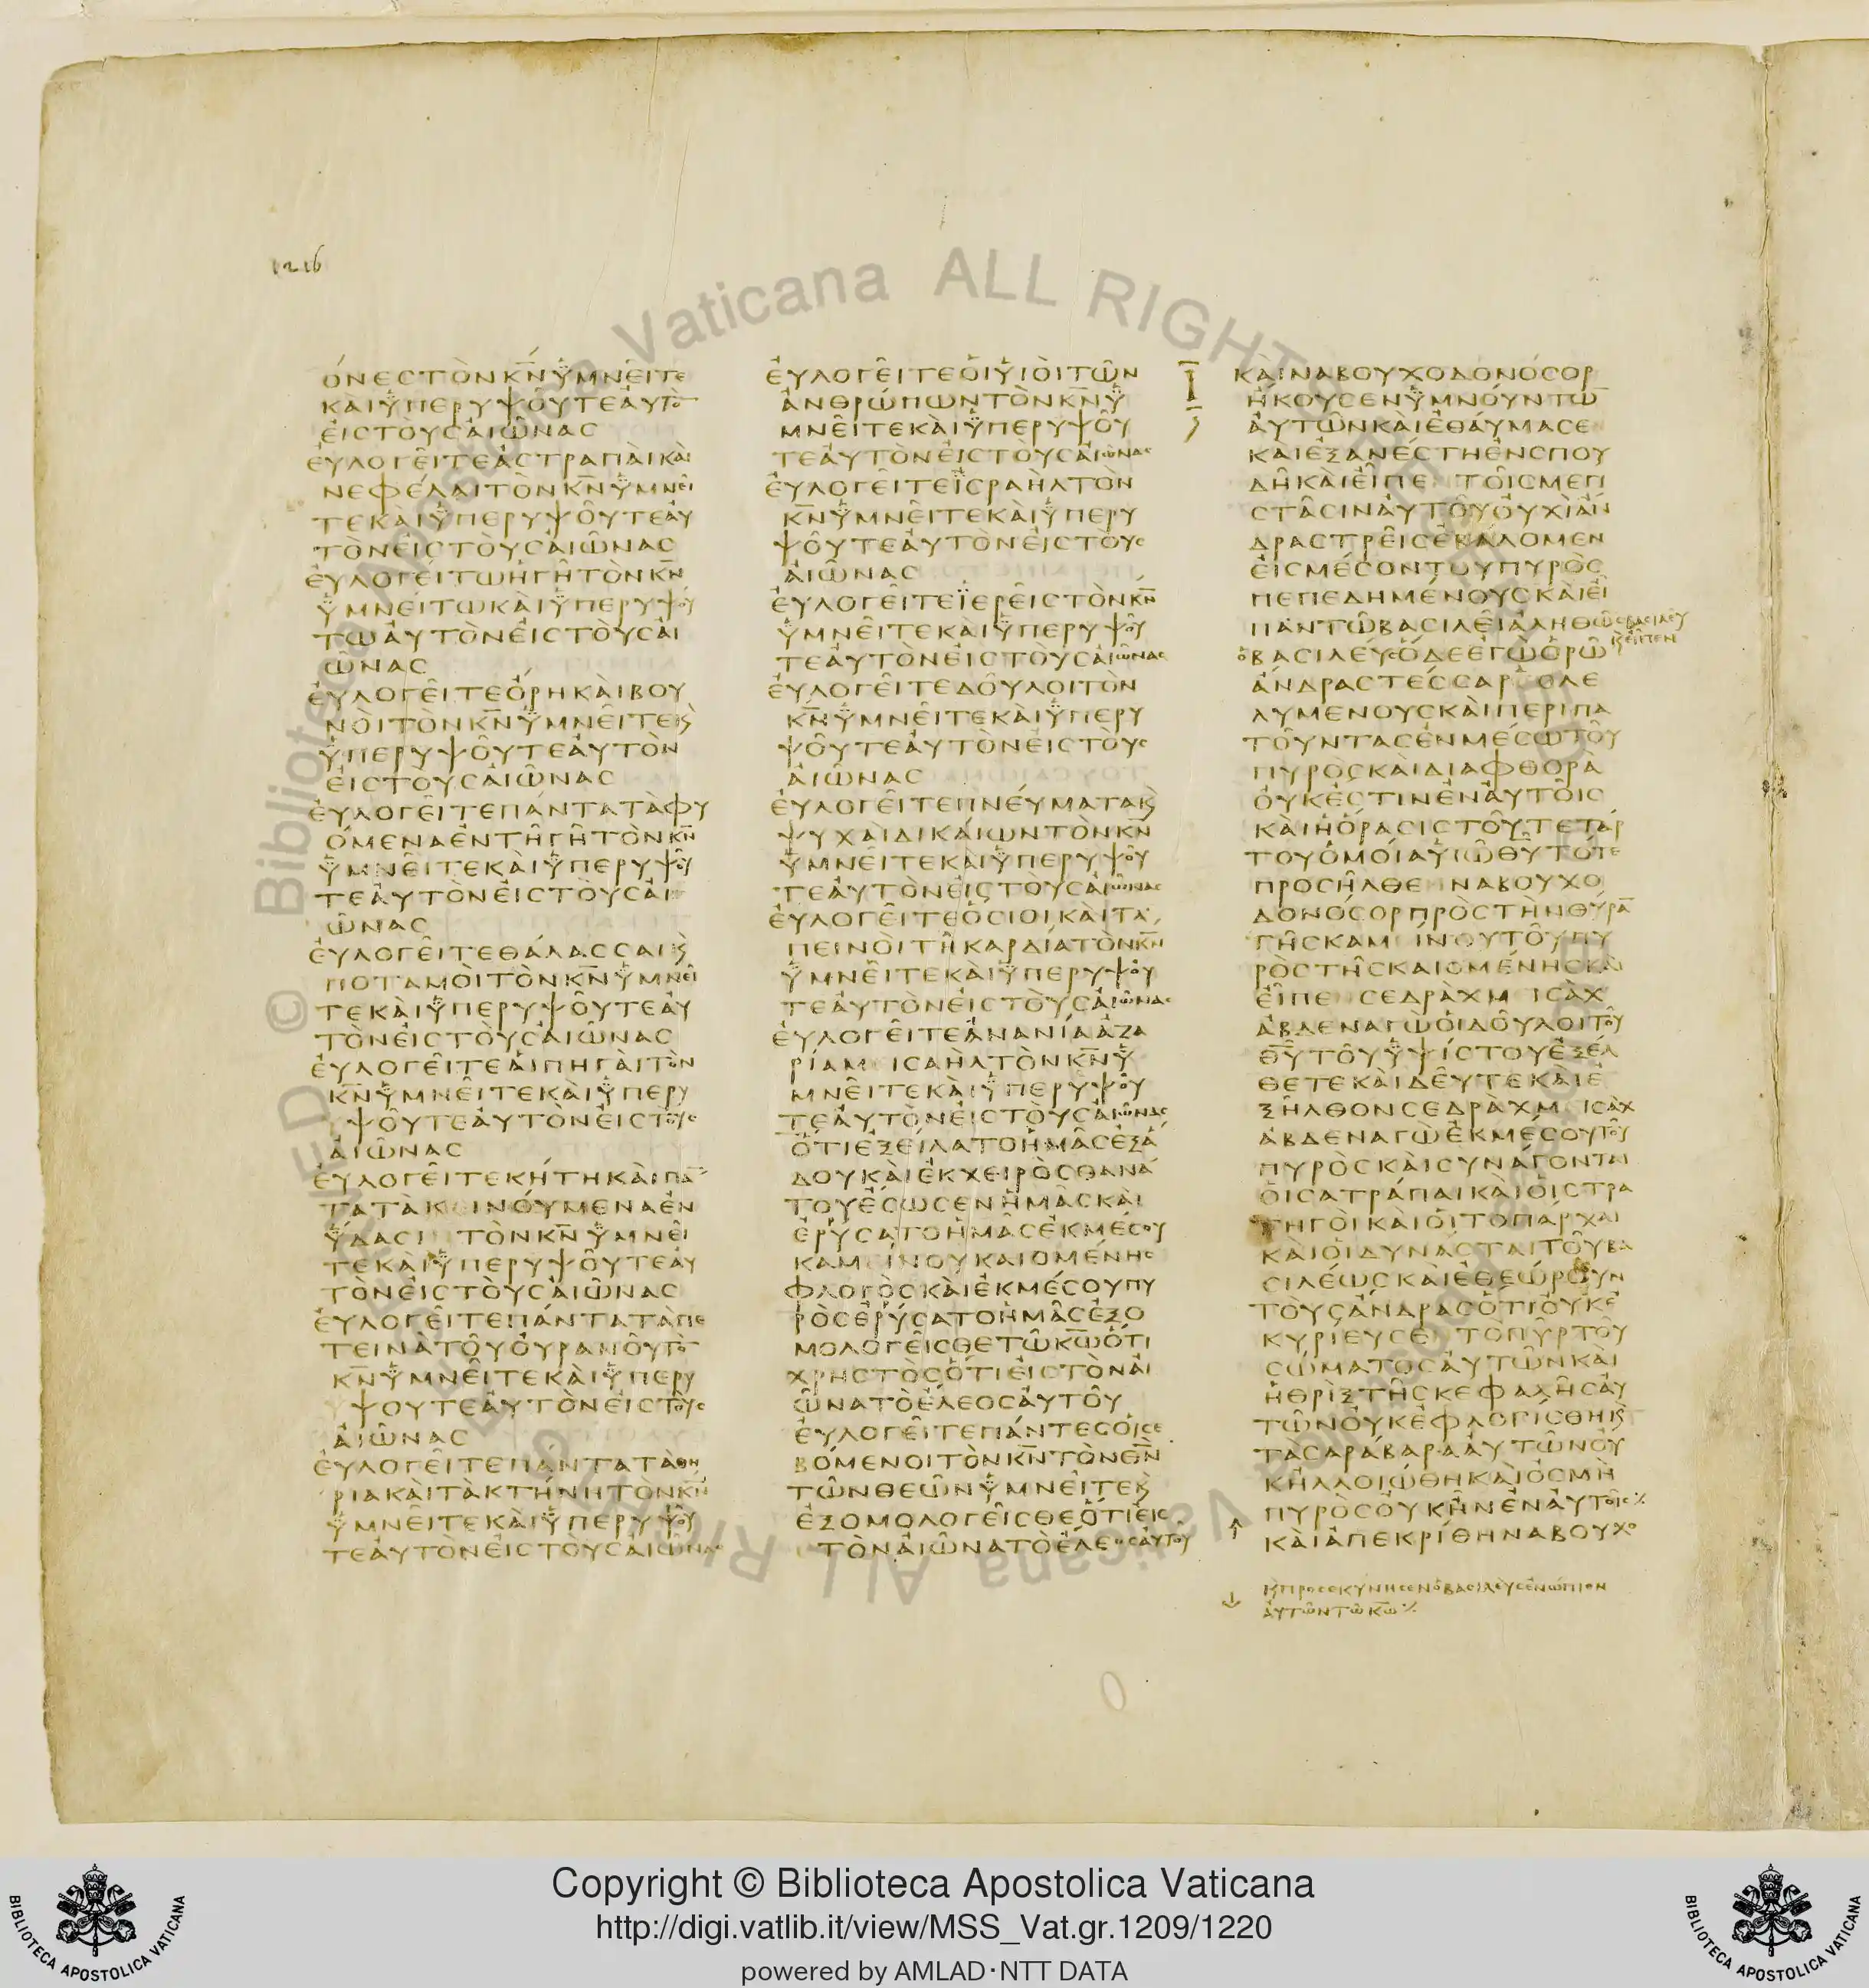 1216
ΌΝΕCΤῸΝΚ̅Ν̅ΫΜΝΕΙΤΕ
ΚΑΙΫΠΕΡΥΨΟΥΤΕΑΥΤΟ̅
ΕΙCΤΟΥCΑΙΩΝΑC
ΕΥΛΟΓΕΙΤΕΑCΤΡΑΠΑΙΚΑΙ
ΝΕΦΕΛΑΙΤΟΝΚ̅Ν̅ΫΜΝΕΙ
ΤΕΚΑΙΫΠΕΡΥΨΟΥΤΕΑΥ
ΤΟΝΕΙCΤΟΥCΑΙΩΝΑC
ΕΥΛΟΓΕΙΤΩΗΓΗΤΟΝΚ̅Ν̅
ΫΜΝΕΙΤΩΚΑΙΫΠΕΡΥΨΟΥ
ΤΩΑΥΤΟΝΕΙCΤΟΥCΑΙ
ΩΝΑC
ΕΥΛΟΓΕΙΤΕΟΡΗΚΑΙΒΟΥ
ΝΟΙΤΟΝΚ̅Ν̅ΫΜΝΕΙΤΕϗ
ΫΠΕΡΥΨΟΥΤΕΑΥΤΟΝ
ΕΙCΤΟΥCΑΙΩΝΑC
ΕΥΛΟΓΕΙΤΕΠΑΝΤΑΤΑΦΥ
ΟΜΕΝΑΕΝΤΗΓΗΤΟΝΚ̅Ν̅
ΫΜΝΕΙΤΕΚΑΙΫΠΕΡΥΨΟΥ
ΤΕΑΥΤΟΝΕΙCΤΟΥCΑΙ
ΩΝΑC
ΕΥΛΟΓΕΙΤΕΘΑΛΑCCΑΙϗ
ΠΟΤΑΜΟΙΤΟΝΚ̅Ν̅ΫΜΝΕΙ
ΤΕΚΑΙΫΠΕΡΥΨΟΥΤΕΑΥ
ΤΟΝΕΙCΤΟΥCΑΙΩΝΑC
ΕΥΛΟΓΕΙΤΕΑΙΠΗΓΑΙΤΟΝ
Κ̅Ν̅ΫΜΝΕΙΤΕΚΑΙΫΠΕΡΥ
ΨΟΥΤΕΑΥΤΟΝΕΙCΤΟΥC
ΑΙΩΝΑC
ΕΥΛΟΓΕΙΤΕΚΗΤΗΚΑΙΠΑ̅
ΤΑΤΑΚΕΙΝΟΥΜΕΝΑΕΝ
ΫΔΑCΙ ΤΟΝΚ̅Ν̅ΫΜΝΕΙ
ΤΕΚΑΙΫΠΕΡΥΨΟΥΤΕΑΥ
ΤΟΝΕΙCΤΟΥCΑΙΩΝΑC
ΕΥΛΟΓΕΙΤΕΠΑΝΤΑΤΑΠΕ
ΤΕΙΝΑΤΟΥΟΥΡΑΝΟΥΤΟ̅
Κ̅Ν̅ΫΜΝΕΙΤΕΚΑΙΫΠΕΡΥ
ΨΟΥΤΕΑΥΤΟΝΕΙCΤΟΥC
ΑΙΩΝΑC
ΕΥΛΟΓΕΙΤΕΠΑΝΤΑΤΑΘΗ
ΡΙΑΚΑΙΤΑΚΤΗΝΗΤΟΝΚ̅Ν̅
ΫΜΝΕΙΤΕΚΑΙΫΠΕΡΥΨΟΥ
ΤΕΑΥΤΟΝΕΙCΤΟΥCΑΙΩΝΑC
ΕΥΛΟΓΕΙΤΕΟΙΫΙΟΙΤΩΝ
ΑΝΘΡΩΠΩΝΤΟΝΚ̅Ν̅Ϋ
ΜΝΕΙΤΕΚΑΙΫΠΕΡΥΨΟΥ
ΤΕΑΥΤΟΝΕΙCΤΟΥCΑΙΩΝΑC
ΕΥΛΟΓΕΙΤΕΪCΡΑΗΛΤΟΝ
Κ̅Ν̅ΫΜΝΕΙΤΕΚΑΙΫΠΕΡΥ
ΨΟΥΤΕΑΥΤΟΝΕΙCΤΟΥC
ΑΙΩΝΑC
ΕΥΛΟΓΕΙΤΕΪΕΡΕΙCΤΟΝΚ̅Ν̅
ΫΜΝΕΙΤΕΚΑΙΫΠΕΡΥΨΟΥ
ΤΕΑΥΤΟΝΕΙCΤΟΥCΑΙΩΝΑC
ΕΥΛΟΓΕΙΤΕΔΟΥΛΟΙΤΟΝ
Κ̅Ν̅ΫΜΝΕΙΤΕΚΑΙΫΠΕΡΥ
ΨΟΥΤΕΑΥΤΟΝΕΙCΤΟΥC
ΑΙΩΝΑC
ΕΥΛΟΓΕΙΤΕΠΝΕΥΜΑΤΑϗ
ΨΥΧΑΙΔΙΚΑΙΩΝΤΟΝΚ̅Ν̅
ΫΜΝΕΙΤΕΚΑΙΫΠΕΡΥΨΟΥ
ΤΕΑΥΤΟΝΕΙCΤΟΥCΑΙΩΝΑC
ΕΥΛΟΓΕΙΤΕΟCΙΟΙΚΑΙΤΑ
ΠΕΙΝΟΙΤΗΚΑΡΔΙΑΤΟΝΚ̅Ν̅
ΫΜΝΕΙΤΕΚΑΙΫΠΕΡΥΨΟΥ
ΤΕΑΥΤΟΝΕΙCΤΟΥCΑΙΩΝΑC
ΕΥΛΟΓΕΙΤΕΑΝΑΝΙΑΑΖΑ
ΡΙΑΜ ΙCΑΗΛΤΟΝΚ̅Ν̅Ϋ
ΜΝΕΙΤΕΚΑΙΫΠΕΡΥΨΟΥ
ΤΕΑΥΤΟΝΕΙCΤΟΥCΑΙΩΝΑC
ΟΤΙΕΞΕΙΛΑΤΟΗΜΑCΕΞΑ
ΔΟΥΚΑΙΕΚΧΕΙΡΟCΘΑΝΑ
ΤΟΥΕCΩCΕΝΗΜΑCΚΑΙ
ΕΡΥCΑΤΟΗΜΑCΕΚΜΕCΟΥ
ΚΑΜ ΙΝΟΥΚΑΙΟΜΕΝΗC
ΦΛΟΓΟCΚΑΙΕΚΜΕCΟΥΠΥ
ΡΟCΕΡΥCΑΤΟΗΜΑCΕΞΟ
ΜΟΛΟΓΕΙCΘΕΤΩΚ̅Ω̅ΟΤΙ
ΧΡΗCΤΟCΟΤΙΕΙCΤΟΝΑΙ
ΩΝΑΤΟΕΛΕΟCΑΥΤΟΥ
ΕΥΛΟΓΕΙΤΕΠΑΝΤΕCΟΙCΕ
ΒΟΜΕΝΟΙΤΟΝΚ̅Ν̅ΤΟΝΘ̅Ν̅
ΤΩΝΘΕΩΝΫΜΝΕΙΤΕϗ
ΕΞΟΜΟΛΟΓΕΙCΘΕΟΤΙΕΙC
ΤΟΝΑΙΩΝΑΤΟΕΛΕΟCΑΥΤΟΥ
Ι̅
ΚΑΙΝΑΒΟΥΧΟΔΟΝΟCΟΡ
ΗΚΟΥCΕΝΫΜΝΟΥΝΤΩ̅
ΑΥΤΩΝΚΑΙΕΘΑΥΜΑCΕ
ΚΑΙΕΞΑΝΕCΤΗΕΝCΠΟΥ
ΔΗΚΑΙΕΙΠΕ ΤΟΙCΜΕΓΙ
CΤΑCΙΝΑΥΤΟΥΟΥΧΙΑΝ
ΔΡΑCΤΡΕΙCΕΒΑΛΟΜΕΝ
ΕΙCΜΕCΟΝΤΟΥΠΥΡΟC
ΠΕΠΕΔΗΜΕΝΟΥCΚΑΙΕΙ
ΠΑΝΤΩΒΑCΙΛΕΙΑΛΗΘΩCΒΑCΙΛΕΥ
ϗΕΙΠΕΝ
ΟΒΑCΙΛΕΥCΟΔΕΕΓΩΟΡΩ
ΑΝΔΡΑCΤΕCCΑΡ CΛΕ
ΛΥΜΕΝΟΥCΚΑΙΠΕΡΙΠΑ
ΤΟΥΝΤΑCΕΝΜΕCΩΤΟΥ
ΠΥΡΟCΚΑΙΔΙΑΦΘΟΡΑ
ΟΥΚΕCΤΙΝΕΝΑΥΤΟΙC
ΚΑΙΗΟΡΑCΙCΤΟΥΤΕΤΑΡ
ΤΟΥΟΜΟΙΑΫΙΩΘ̅Υ̅ΤΟΤΕ
ΠΡΟCΗΛΘΕ ΝΑΒΟΥΧΟ
ΔΟΝΟCΟΡΠΡΟCΤΗΝΘΥΡΑ̅
ΤΗCΚΑΜ ΙΝΟΥΤΟΥΠΥ
ΡΟCΤΗCΚΑΙΟΜΕΝΗCΚΑΙ
ΕΙΠΕ CΕΔΡΑΧΜ ΙCΑΧ
ΑΒΔΕΝΑΓΩΟΙΔΟΥΛΟΙΤΟΥ
Θ̅Υ̅ΤΟΥΫΨΙCΤΟΥΕΞΕΛ
ΘΕΤΕΚΑΙΔΕΥΤΕΚΑΙΕ
ΞΗΛΘΟΝCΕΔΡΑΧΜ ΙCΑΧ
ΑΒΔΕΝΑΓΩΕΚΜΕCΟΥΤΟΥ
ΠΥΡΟCΚΑΙCΥΝΑΓΟΝΤΑΙ
ΟΙCΑΤΡΑΠΑΙΚΑΙΟΙCΤΡΑ
ΤΗΓΟΙΚΑΙΟΙΤΟΠΑΡΧΑΙ
ΚΑΙΟΙΔΥΝΑCΤΑΙΤΟΥΒΑ
CΙΛΕΩCΚΑΙΕΘΕΩΡΟΥΝ
ΤΟΥCΑΝΔΡΑCΟΤΙΟΥΚΕ
ΚΥΡΙΕΥCΕ ΤΟΠΥΡΤΟΥ
CΩΜΑΤΟCΑΥΤΩΝΚΑΙ
ΗΘΡΙΞΤΗCΚΕΦΑΛΗCΑΥ
ΤΩΝΟΥΚΕΦΛΟΓΙCΘΗϗ
ΤΑCΑΡΑΒΑΡΑΑΥΤΩΝΟΥ
ΚΗΛΛΟΙΩΘΗΚΑΙΟCΜΗ
ΠΥΡΟCΟΥΚΗΝΕΝΑΥΤΟΙC
ΚΑΙΑΠΕΚΡΙΘΗΝΑΒΟΥΧΟ
ϗΠΡΟCΕΚΥΝΗCΕΝΟΒΑCΙΛΕΥCΕΝΩΠΙΟΝ
ΑΥΤΩΝΤΩΚ̅Ω̅
© Biblioteca Apostolica Vaticana ALL RIGHTS RESERVED
Copyright © Biblioteca Apostolica Vaticana
http://digi.vatlib.it/view/MSS_Vat.gr.1209/1220
powered by AMLAD·NTT DATA
BIBLIOTECA APOSTOLICA VATICANA
BIBLIOTECA APOSTOLICA VATICANA